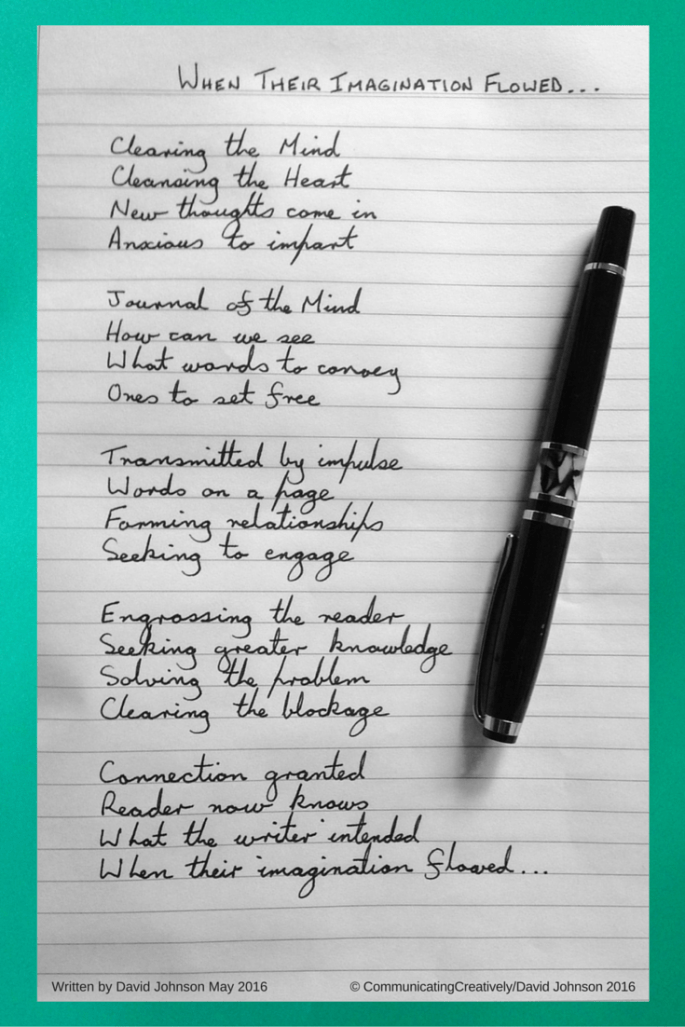 WHEN THEIR IMAGINATION FLOWED...
Clearing the Mind
Cleansing the Heart
New thoughts come in
Anxious to impart
Journal of the Mind
How can we see
What words to convey
Ones to set free
Transmitted by impulse
Words on a page
Forming relationships
Seeking to engage
Engrossing the reader
Seeking greater knowledge
Solving the problem
Clearing the blockage
Connection granted
Reader now knows
What the writer intended
When their imagination flowed...
Written by David Johnson May 2016 © CommunicatingCreatively/David Johnson 2016